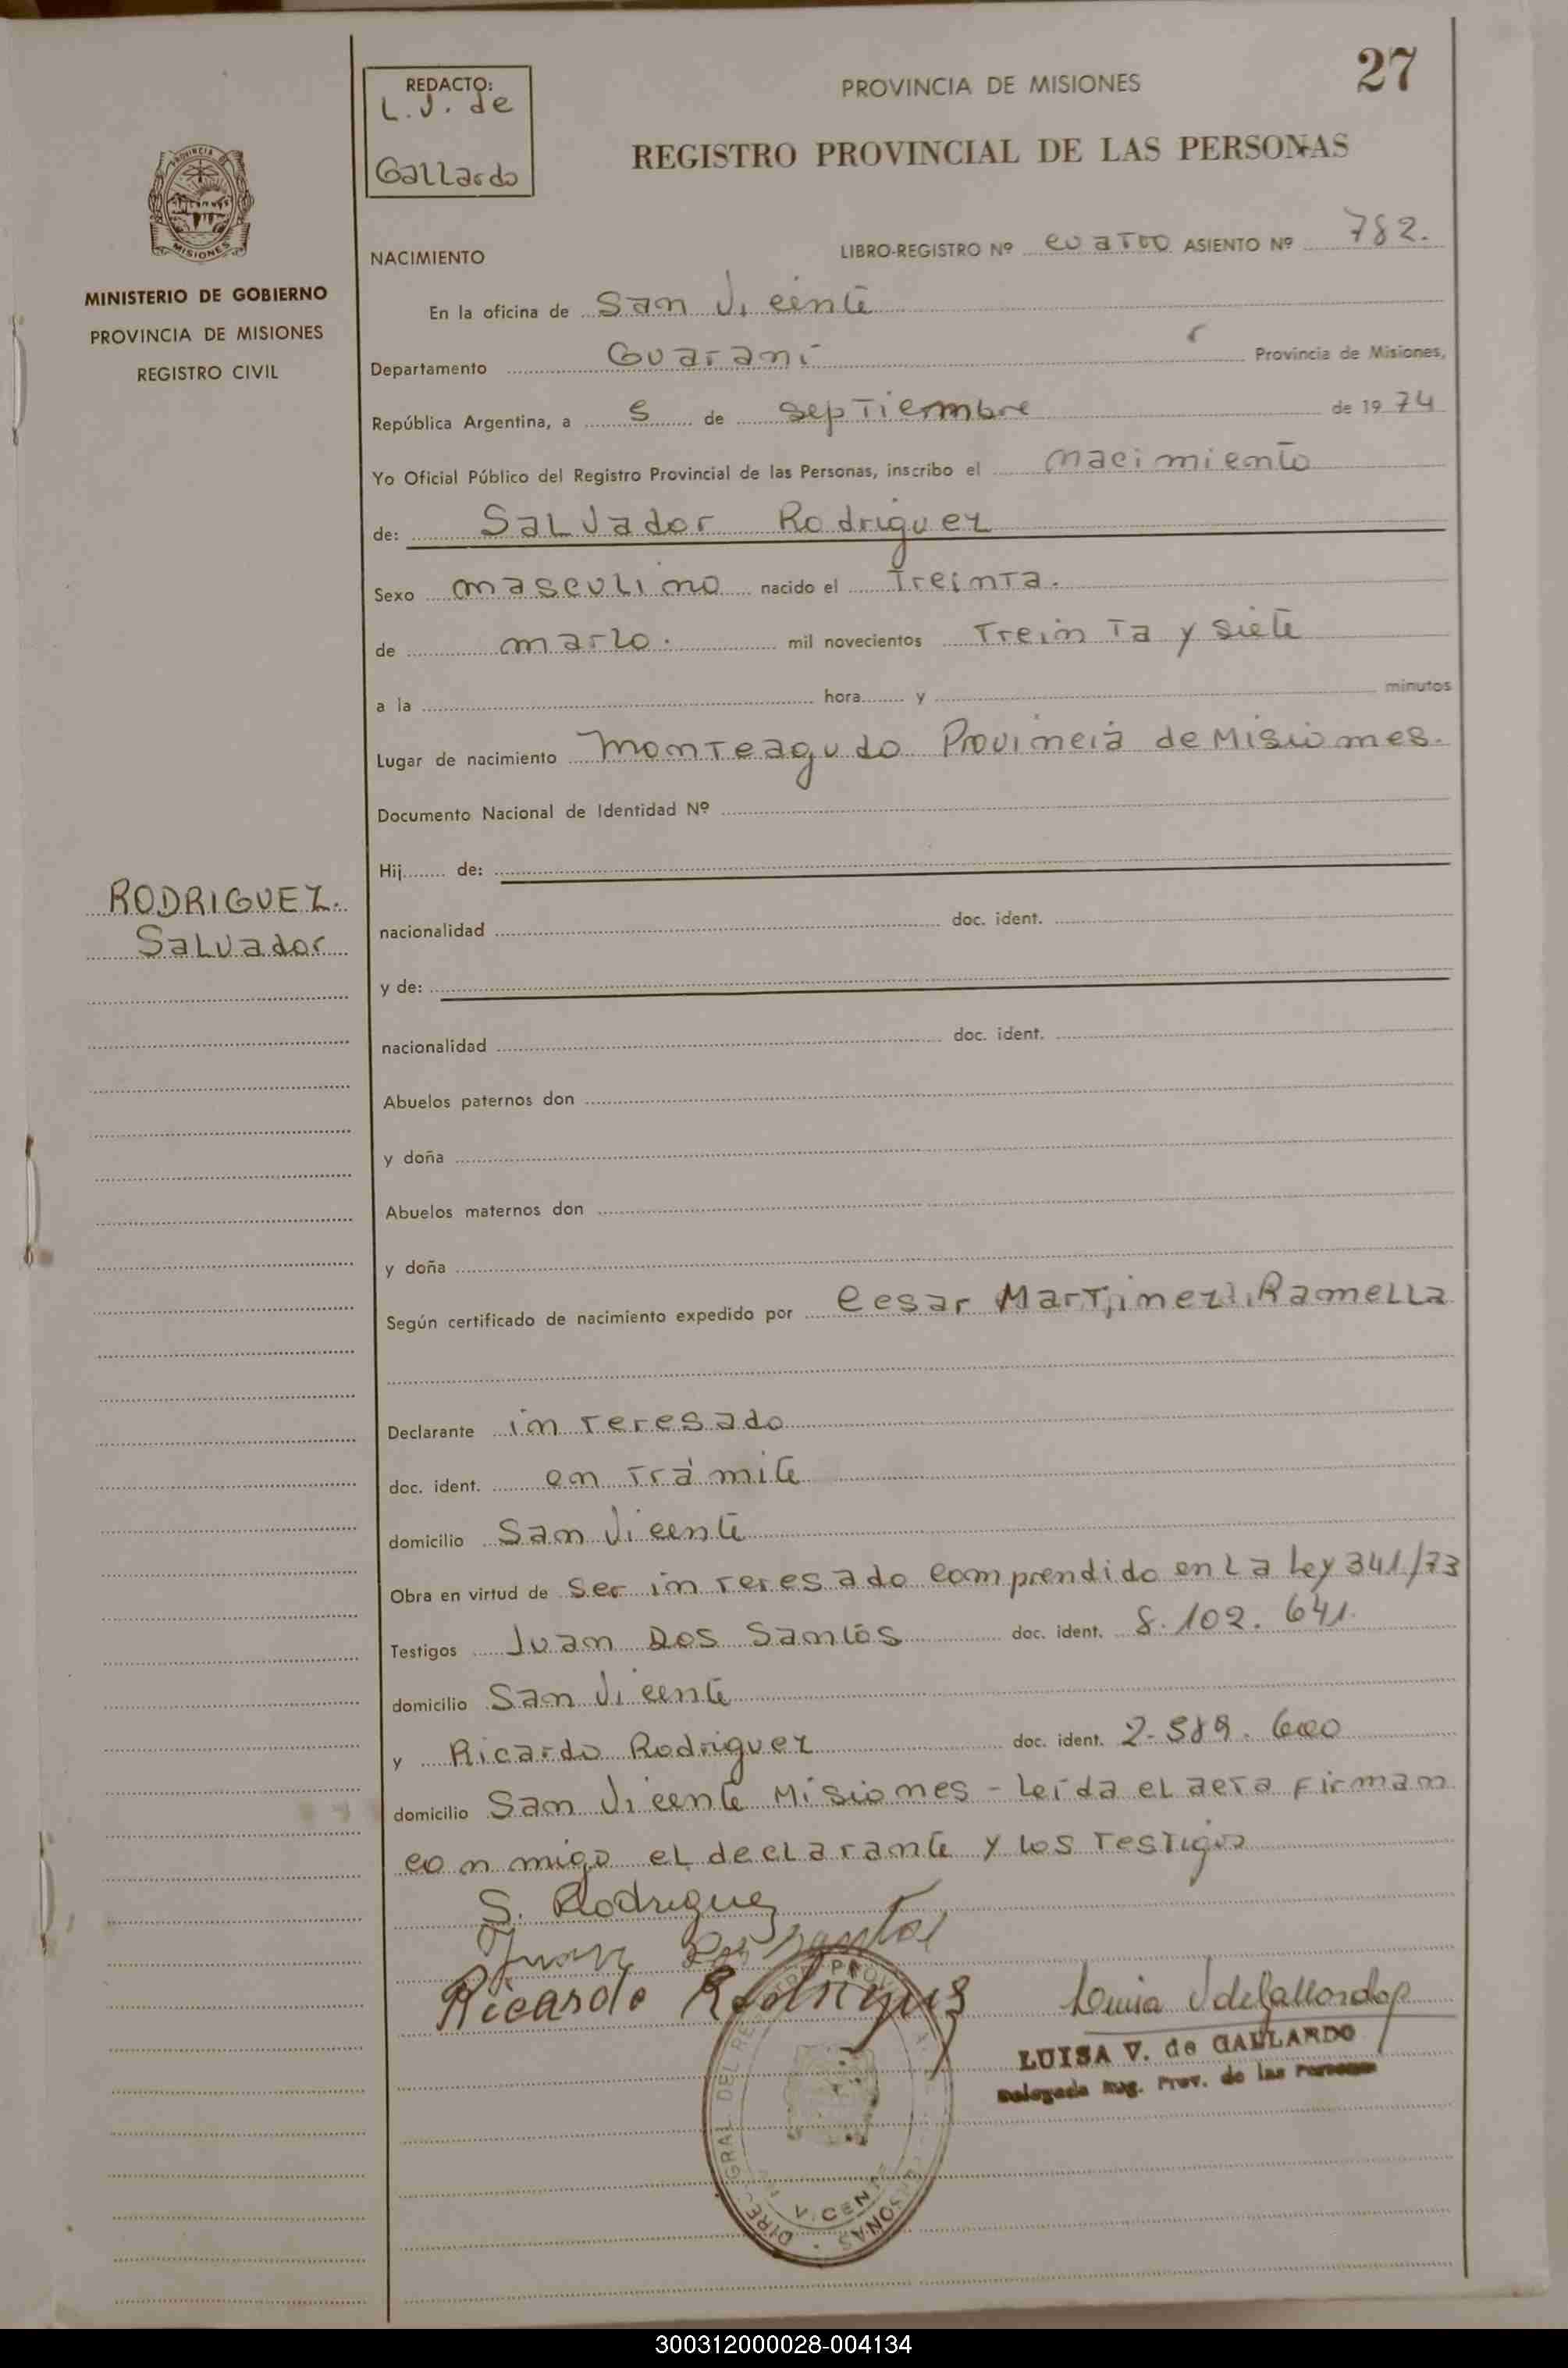 27
REDACTO:
L. V. de
Gallardo
PROVINCIA DE MISIONES
REGISTRO PROVINCIAL DE LAS PERSONAS
PROVINCIA
MISIONES
MINISTERIO DE GOBIERNO
PROVINCIA DE MISIONES
REGISTRO CIVIL
NACIMIENTO
LIBRO-REGISTRO Nº cuatro ASIENTO Nº 782.
En la oficina de San Vicente
Departamento Guaraní Provincia de Misiones,
República Argentina, a 5 de septiembre de 1974
Yo Oficial Público del Registro Provincial de las Personas, inscribo el nacimiento
de: Salvador Rodriguez
Sexo masculino nacido el treinta.
de marzo. mil novecientos treinta y siete
a la hora y minutos
Lugar de nacimiento Monteagudo Provincia de Misiones.
Documento Nacional de Identidad Nº
Hij de:
RODRIGUEZ.
Salvador
nacionalidad doc. ident.
y de:
nacionalidad doc. ident.
Abuelos paternos don
y doña
Abuelos maternos don
y doña
Según certificado de nacimiento expedido por Cesar Martinez Ramella
Declarante interesado
doc. ident. en trámite
domicilio San Vicente
Obra en virtud de ser interesado comprendido en la Ley 341/73
Testigos Juan Dos Santos doc. ident. 8.102.641.
domicilio San Vicente
y Ricardo Rodriguez doc. ident. 2-589.600
domicilio San Vicente Misiones - leída el acta firman
conmigo el declarante y los testigos
S. Rodriguez
Juan Dos Santos
Ricardo Rodrigues
Luisa V de Gallardo
LUISA V. de GALLARDO
Delegada Reg. Prov. de las Personas
300312000028-004134